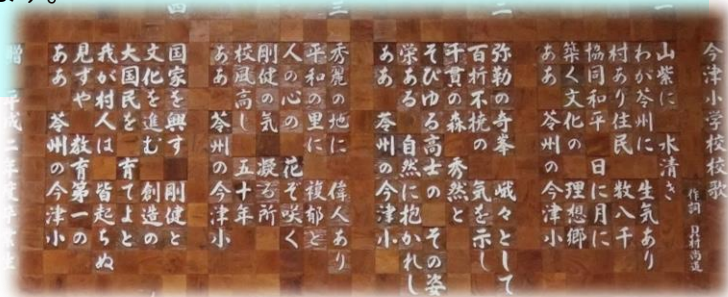 ます。
今津小学校校歌
作詞
一
山紫に 水清き
わが苓州に 生気あり
村あり住民 数八千
協同和平 日に月に
築く文化の 理想郷
ああ 苓州の今津小
二
弥勒の奇峯 峨々として
百折不撓の 気を示し
千貫の森 秀然と
そびゆる高士の その姿
栄ある 自然に抱かれし
ああ 苓州の今津小
三
秀麗の地に 偉人あり
平和の里に 馥郁と
人の心の 花ぞ咲く
剛健の気 凝る所
校風高し 五十年
ああ 苓州の今津小
四
国家を興す 剛健と
文化を進む 創造の
大国民を 育てよと
我が村人は 皆起ちぬ
見ずや 教育第一の
ああ 苓州の今津小
贈 平成二年度卒業生